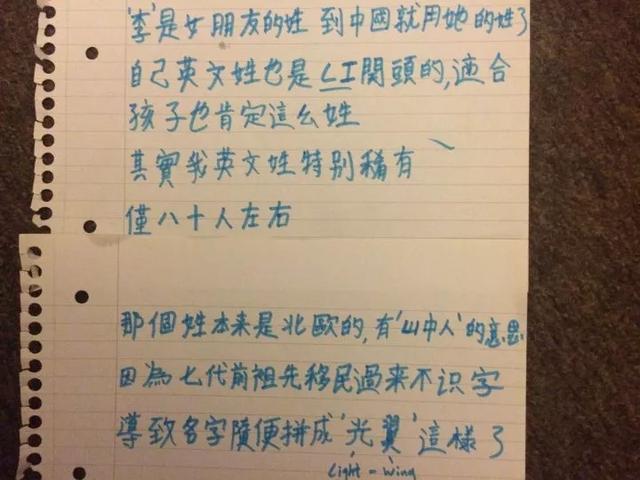 '李'是女朋友的姓 到中國就用她的姓了
自己英文姓也是LI開頭的,適合
孩子也肯定這么姓
其實我英文姓特別稀有
僅八十人左右
那個姓本来是北歐的,有'山中人'的意思
因為七代前祖先移民過来不识字
導致名字隨便拼成'光翼'這樣了
Light - wing